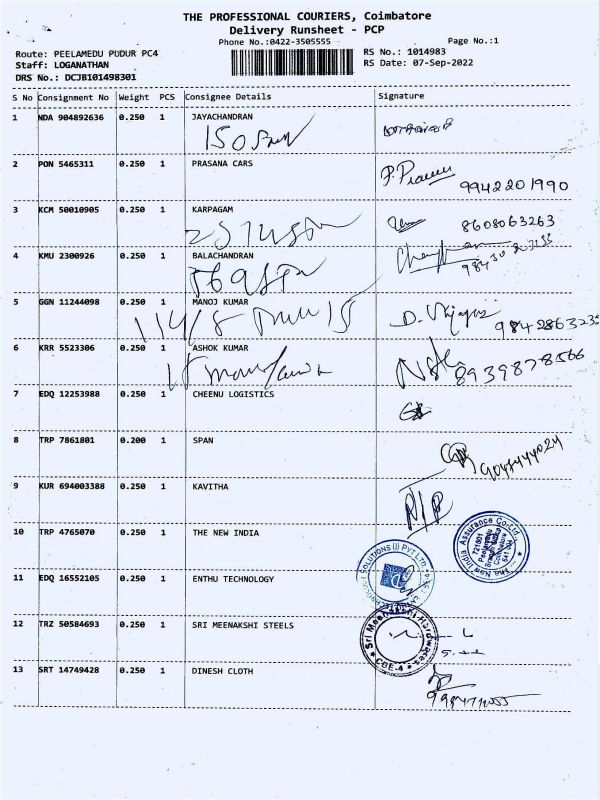 THE PROFESSIONAL COURIERS, Coimbatore
Delivery Runsheet - PCP
Phone No.:0422-3505555
Page No.:1
Route: PEELAMEDU PUDUR PC4
RS No.: 1014983
Staff: LOGANATHAN
RS Date: 07-Sep-2022
DRS No.: DCJB101498301
S No Consignment No Weight PCS Consignee Details Signature
1 NDA 904892636 0.250 1 JAYACHANDRAN
2 PON 5465311 0.250 1 PRASANA CARS
9942201990
3 KCM 50010905 0.250 1 KARPAGAM
8608063263
4 KMU 2300926 0.250 1 BALACHANDRAN
5 GGN 11244098 0.250 1 MANOJ KUMAR
6 KRR 5523306 0.250 1 ASHOK KUMAR
8939878566
7 EDQ 12253988 0.250 1 CHEENU LOGISTICS
8 TRP 7861801 0.200 1 SPAN
9 KUR 694003388 0.250 1 KAVITHA
10 TRP 4765070 0.250 1 THE NEW INDIA
The New India Assurance Co. Ltd.
721801
11 EDQ 16552105 0.250 1 ENTHU TECHNOLOGY
SOLUTIONS (I) PVT LTD
12 TRZ 50584693 0.250 1 SRI MEENAKSHI STEELS
CBE-4
13 SRT 14749428 0.250 1 DINESH CLOTH